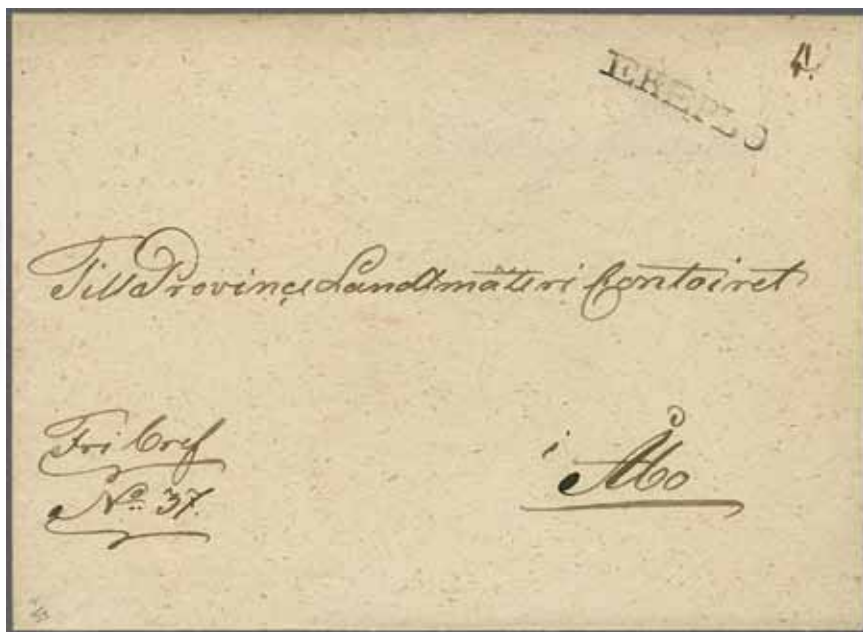 4.
EKEPLO
Till Provinçe Landtmäteri Contoiret
Fri bref
No. 37.
i Åbo